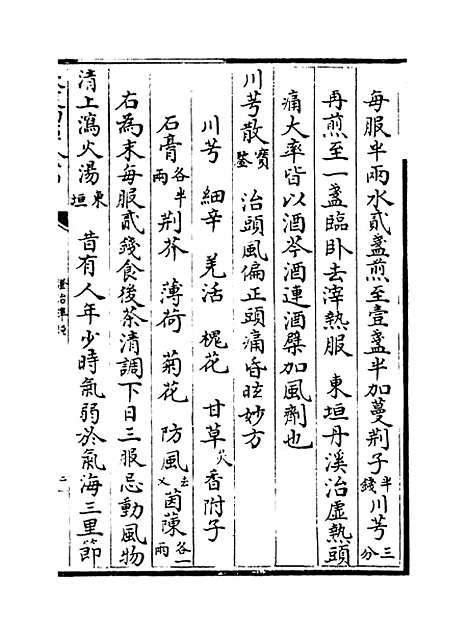 每服半兩水貳盞煎至壹盞半加蔓荆子半錢川芎三分
再煎至一盞臨卧去滓熱服　東垣丹溪治虛熱頭
痛大率皆以酒芩酒連酒蘗加風劑也
川芎散寶鑒　治頭風偏正頭痛昏眩妙方
川芎　細辛　羌活　槐花　甘草炙　香附子
石膏各半兩　荆芥　薄荷　菊花　防風去叉　茵蔯各一兩
右為末每服貳錢食後茶清調下日三服忌動風物
清上瀉火湯東垣　昔有人年少時氣弱於氣海三里節
證治準繩